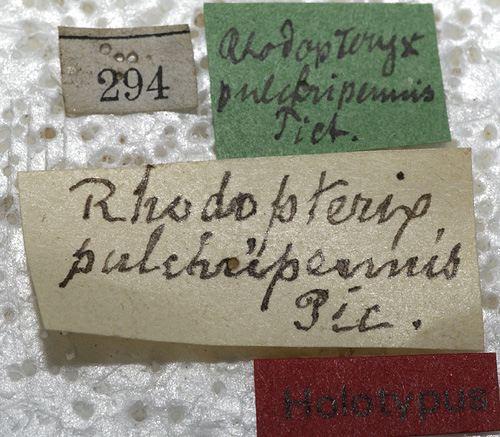 294
Rhodopteryx
pulchripennis
Pict.
Rhodopterix
pulchripennis
Pic.
Holotypus